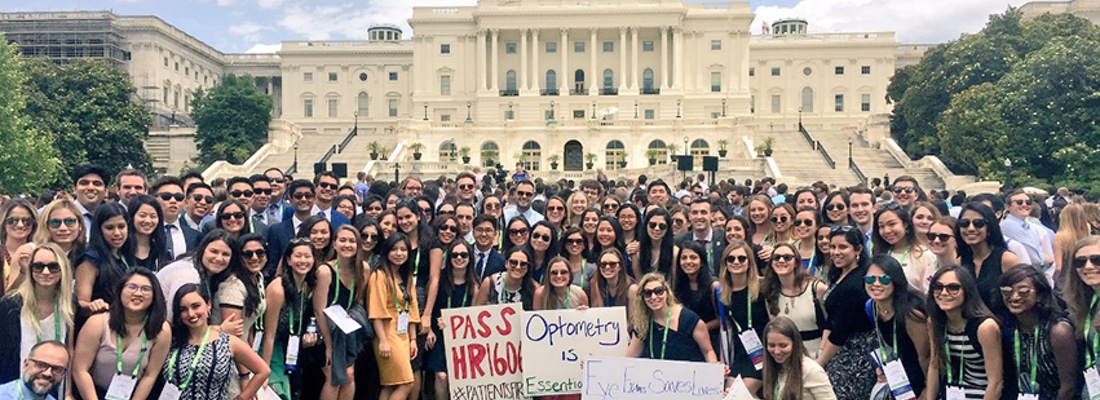 PASS
HR1606
#PATIENTSFIRST
Optometry
is
Essential
Eye Exams Saves Lives